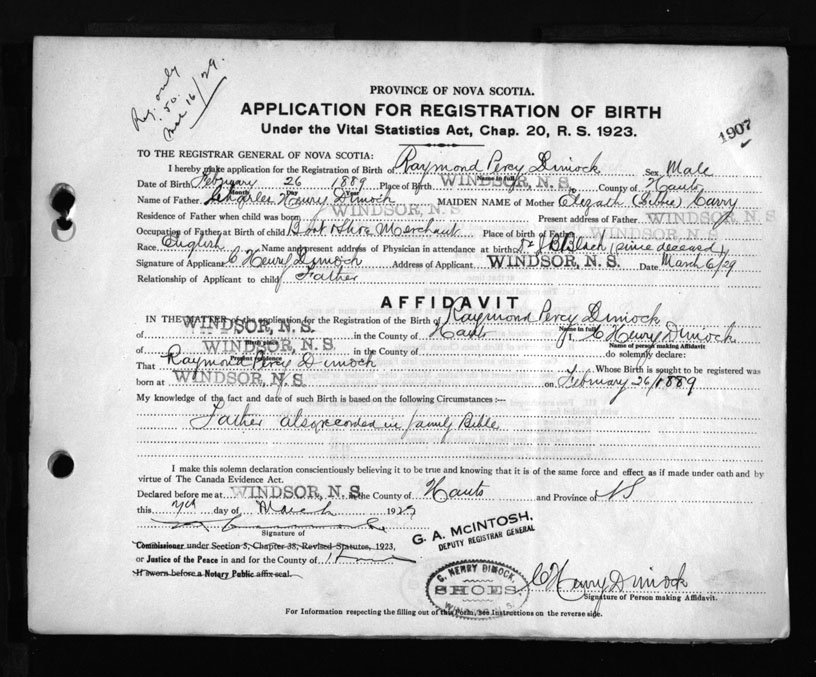 Reg. only
.50
Mar 16/29.
PROVINCE OF NOVA SCOTIA.
APPLICATION FOR REGISTRATION OF BIRTH
Under the Vital Statistics Act, Chap. 20, R. S. 1923.
1907
TO THE REGISTRAR GENERAL OF NOVA SCOTIA:
I hereby make application for the Registration of Birth of Raymond Percy Dimock Sex Male
Name in full
Date of Birth February 26 1889 Place of Birth WINDSOR, N. S. County of Hants
Month Day Year
Name of Father Charles Henry Dimock MAIDEN NAME of Mother (Bessie) Curry
Residence of Father when child was born WINDSOR, N. S. Present address of Father WINDSOR, N. S.
Occupation of Father at Birth of child Boot & Shoe Merchant Place of birth of Father WINDSOR, N. S.
Race English Name and present address of Physician in attendance at birth Dr J B Black (since deceased)
Signature of Applicant C Henry Dimock Address of Applicant WINDSOR, N. S. Date March 6/29
Relationship of Applicant to child Father
AFFIDAVIT
IN THE MATTER of the application for the Registration of the Birth of Raymond Percy Dimock
of WINDSOR, N. S. in the County of Hants I, C Henry Dimock
Name of person making Affidavit
of WINDSOR, N. S. in the County of do solemnly declare:
Present Residence
That Raymond Percy Dimock Whose Birth is sought to be registered was
born at WINDSOR, N. S. on February 26/1889
My knowledge of the fact and date of such Birth is based on the following Circumstances :—
Father also recorded in family Bible
I make this solemn declaration conscientiously believing it to be true and knowing that it is of the same force and effect as if made under oath and by
virtue of The Canada Evidence Act.
Declared before me at WINDSOR, N. S. in the County of Hants and Province of N S
this 7th day of March 1929
Signature of
G. A. McINTOSH,
DEPUTY REGISTRAR GENERAL
Commissioner under Section 5, Chapter 38, Revised Statutes, 1923,
or Justice of the Peace in and for the County of
If sworn before a Notary Public affix seal.
C. HENRY DIMOCK,
SHOES
WINDSOR, N. S.
C Henry Dimock
Signature of Person making Affidavit.
For Information respecting the filling out of this Form, see Instructions on the reverse side.